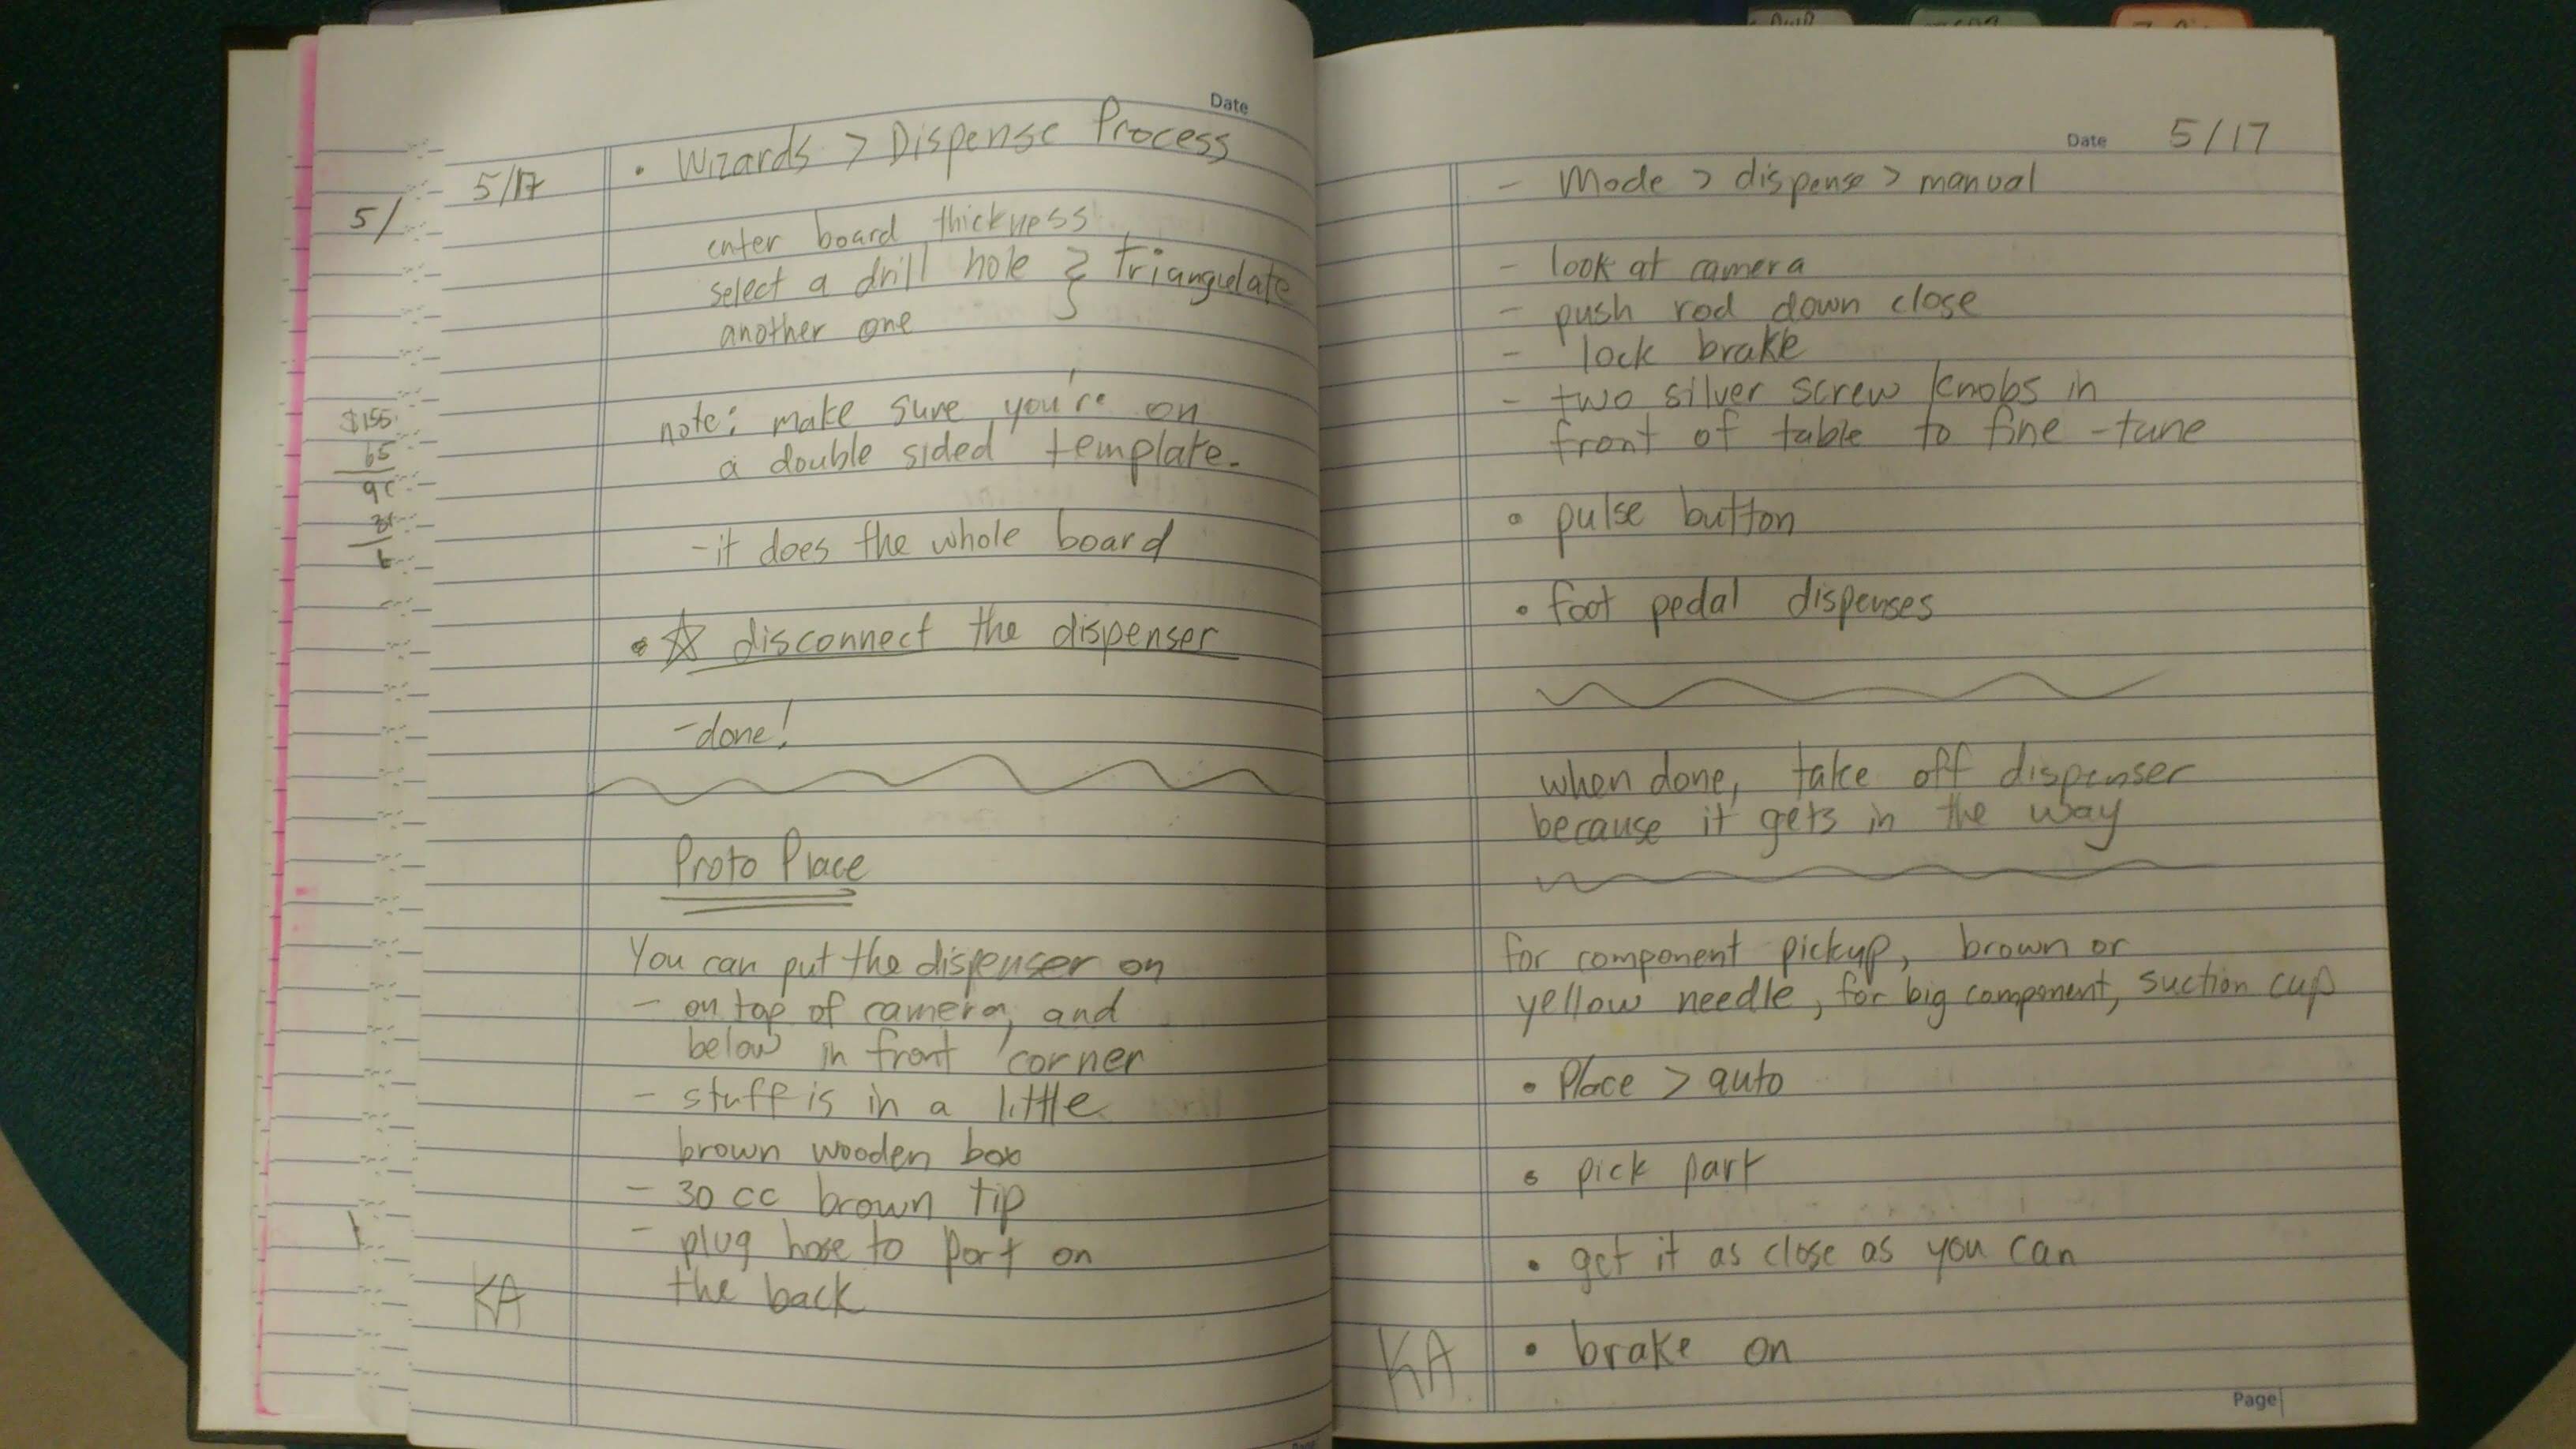 Date
5/17
• Wizards > Dispense Process
enter board thickness
select a drill hole } triangulate
another one
note: make sure you're on
a double sided template.
- it does the whole board
• ☆ disconnect the dispenser
- done!
Proto Place
You can put the dispenser on
- on top of camera, and
below in front corner
- stuff is in a little
brown wooden box
- 30 cc brown tip
- plug hose to port on
the back
KA
5/
$155
65
Date 5/17
- Mode > dispense > manual
- look at camera
- push rod down close
- lock brake
- two silver screw knobs in
front of table to fine-tune
• pulse button
• foot pedal dispenses
when done, take off dispenser
because it gets in the way
for component pickup, brown or
yellow needle, for big component, suction cup
• Place > auto
• pick part
• get it as close as you can
• brake on
KA
Page